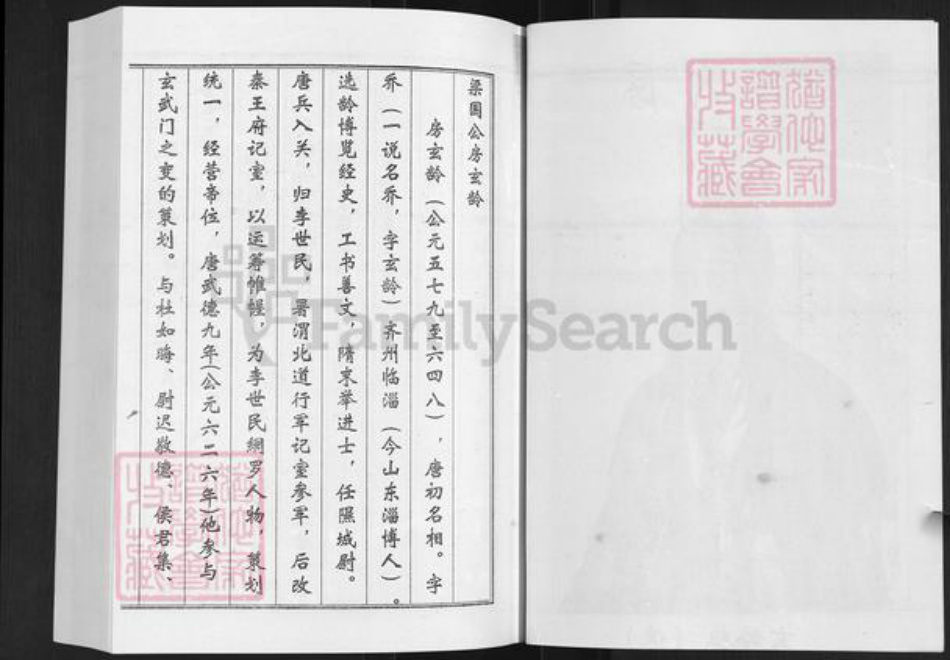 梁国公房玄龄
房玄龄（公元五七九至六四八），唐初名相。字
乔（一说名乔，字玄龄）齐州临淄（今山东淄博人）。
选龄博览经史，工书善文，隋末举进士，任隰城尉。
唐兵入关，归李世民，署渭北道行军记室参军，后改
秦王府记室，以运筹帷幄，为李世民網罗人物，策划
统一，经营帝位，唐武德九年(公元六二六年)他参与
玄武门之变的策划。与杜如晦、尉迟敬德、侯君集、
猶他家
譜學會
收藏
猶他家
譜學會
收藏
FamilySearch